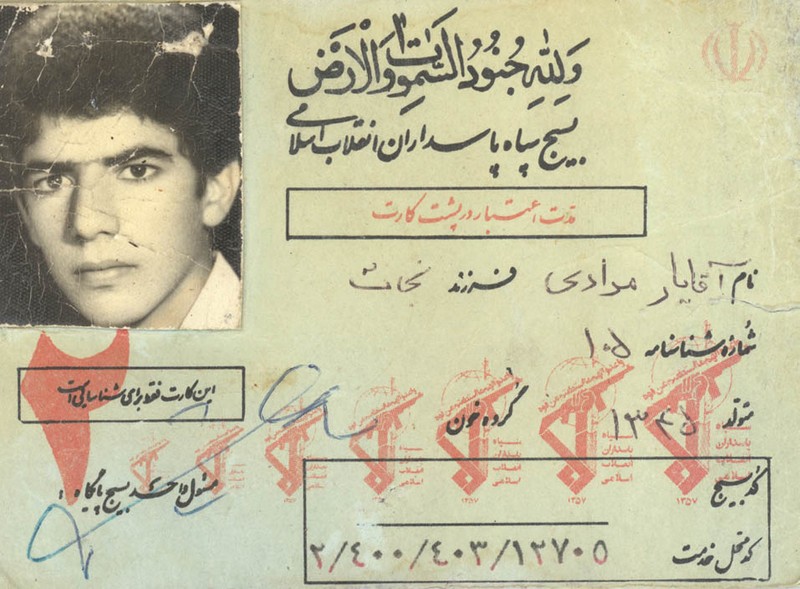 وَلِلّٰهِ جُنُودُ السَّمٰوٰاتِ وَالْاَرْضِ
بسیج سپاه پاسداران انقلاب اسلامی
مدت اعتبار در پشت کارت
نام آقایار مرادی فرزند نجات
شماره شناسنامه ۱۰۵
متولد ۱۳۴۵ گروه خون
این کارت فقط برای شناسایی است
۲
سپاه پاسداران انقلاب اسلامی
۱۳۵۷
مسئول واحد بسیج پایگاه :
کد بسیج
کد محل خدمت ۲/۴۰۰/۴۰۳/۱۲۷۰۵